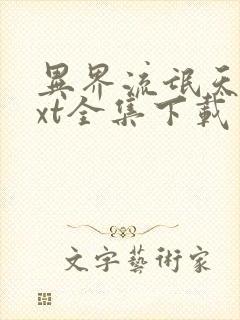 異界流氓天
xt全集下載
文字藝術家